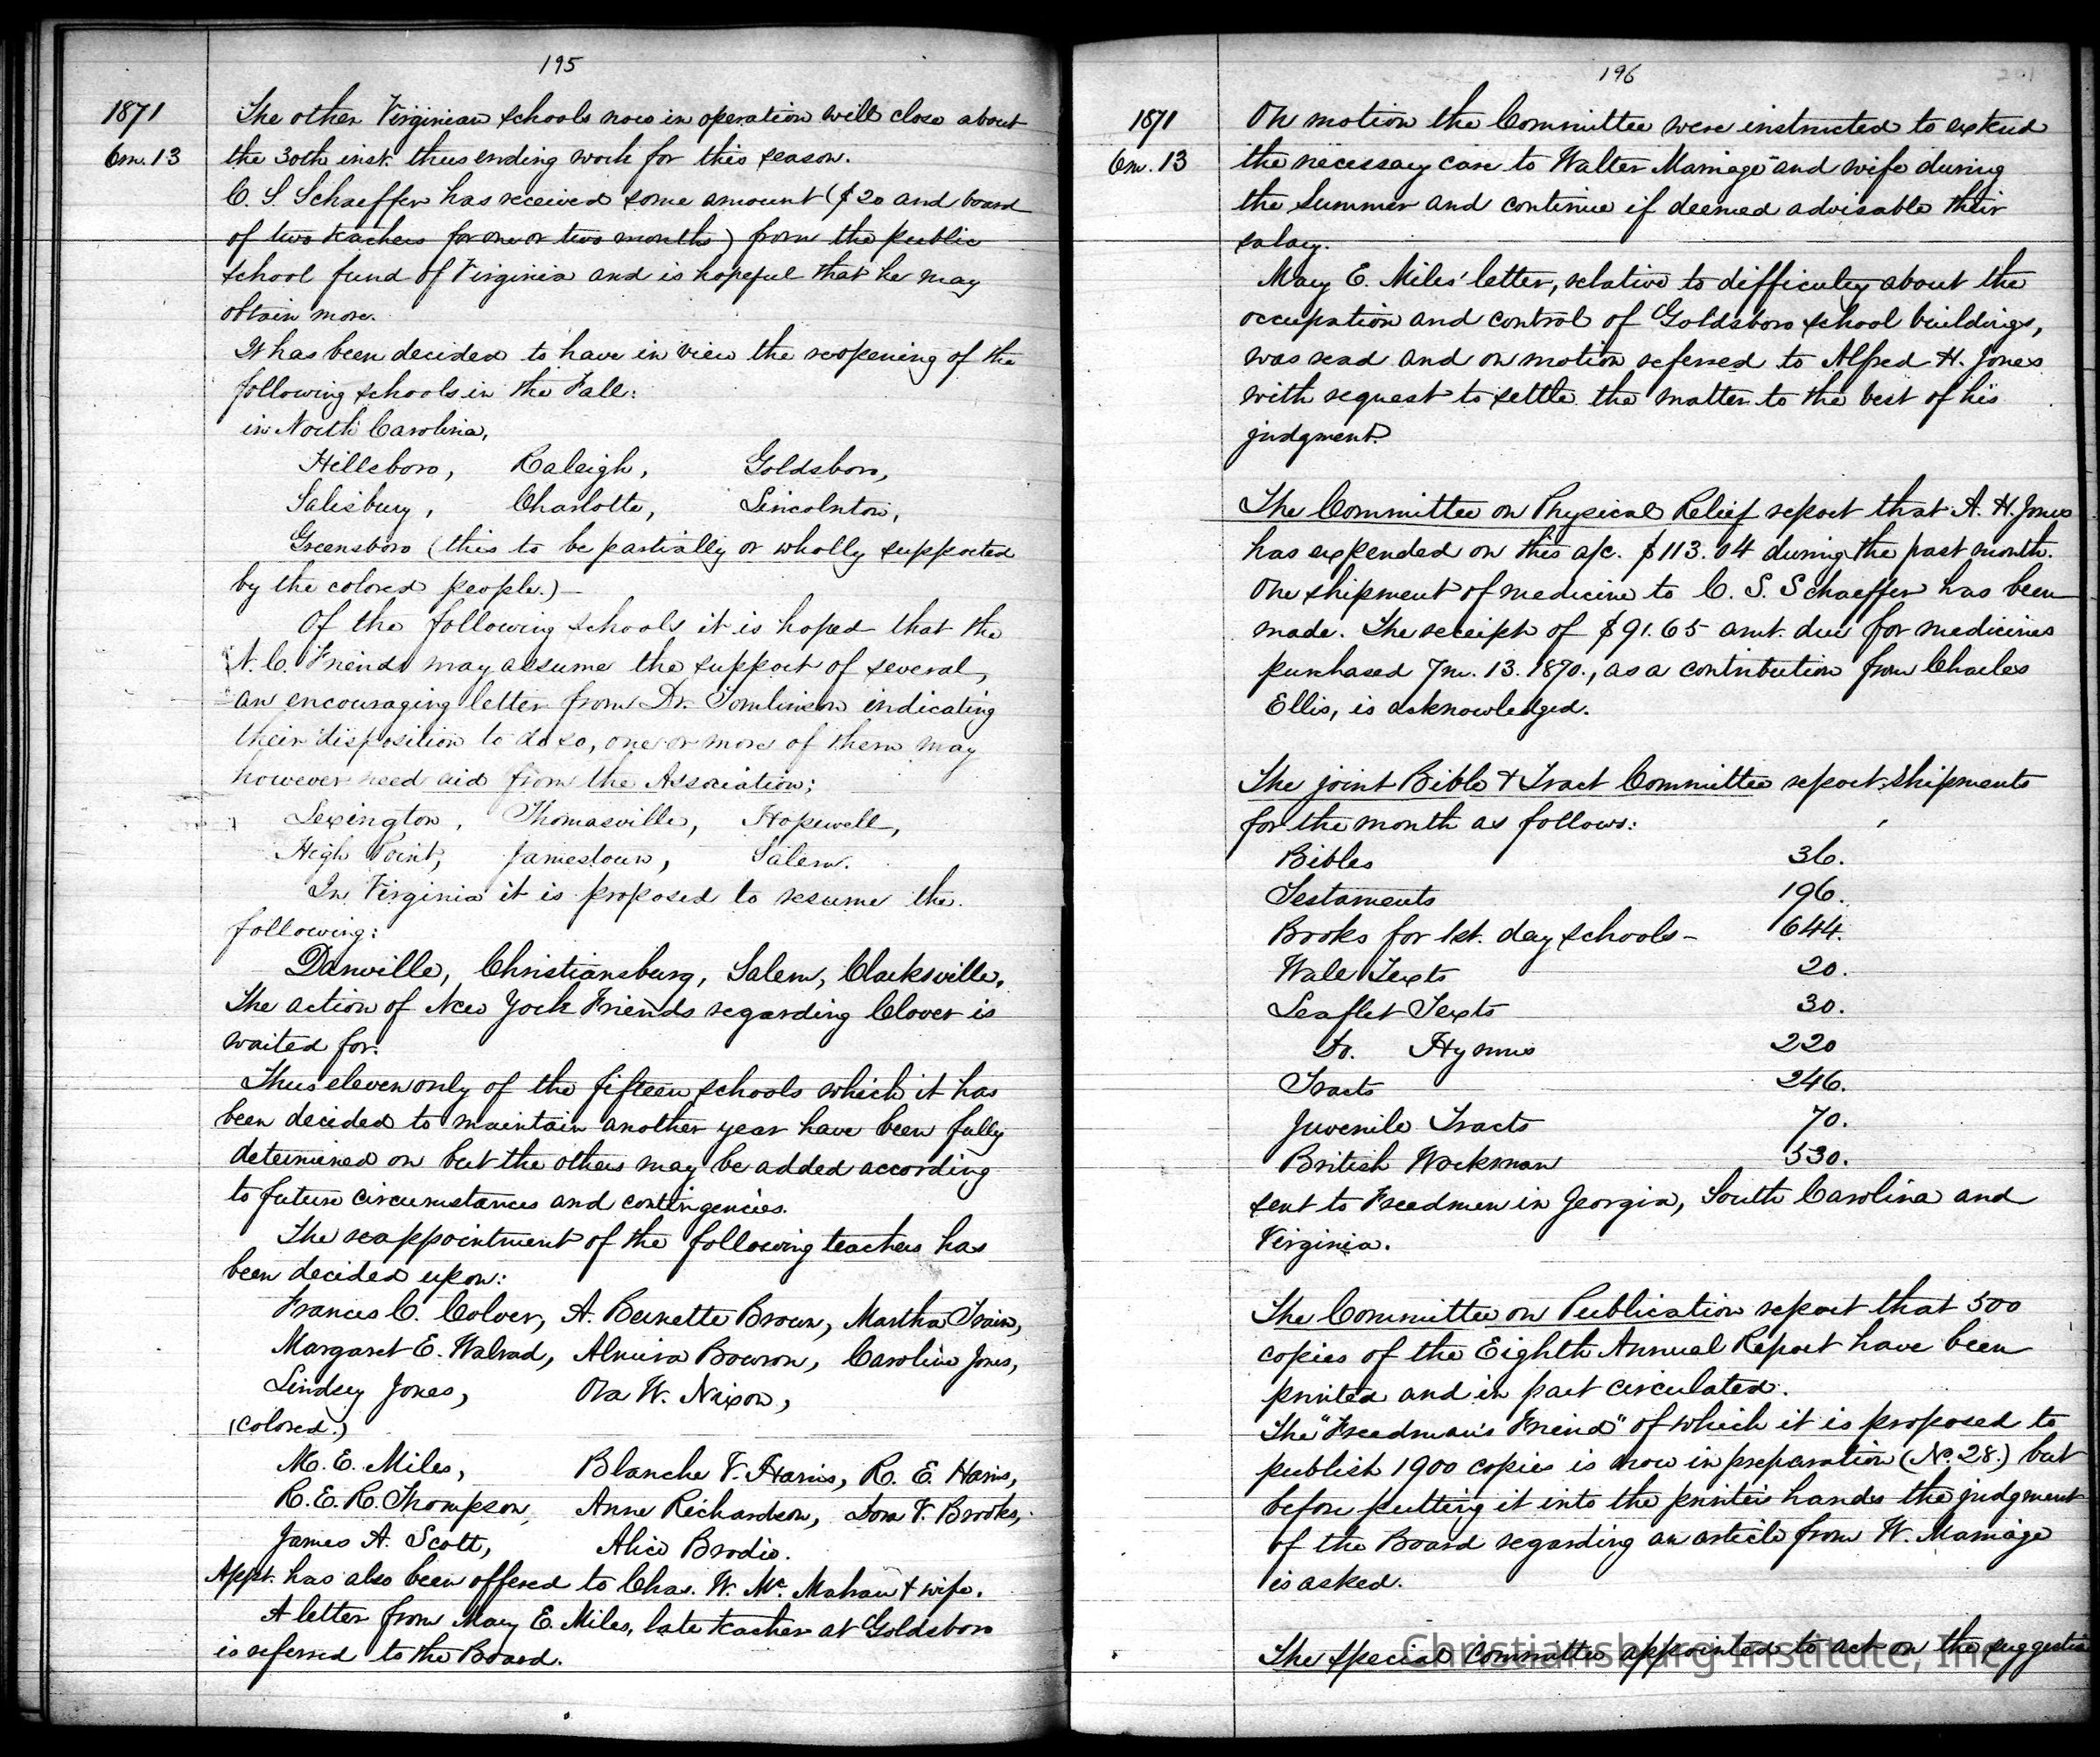 195
1871
6m. 13
The other Virginian schools now in operation will close about
the 30th inst. thus ending work for this season.
C. S. Schaeffer has received some amount ($20 and board
of two teachers for one or two months) from the public
school fund of Virginia and is hopeful that he may
obtain more.
It has been decided to have in view the reopening of the
following schools in the Fall:
in North Carolina,
Hillsboro, Raleigh, Goldsboro,
Salisbury, Charlotte, Lincolnton,
Greensboro (this to be partially or wholly supported
by the colored people.)—
Of the following schools it is hoped that the
N. C. Friends may assume the support of several,
an encouraging letter from Dr. Tomlinson indicating
their disposition to do so, one or more of them may
however need aid from the Association;
Lexington, Thomasville, Hopewell,
High Point, Jamestown, Salem.
In Virginia it is proposed to resume the
following:
Danville, Christiansburg, Salem, Clarksville.
The action of New York Friends regarding Clover is
waited for.
Thus eleven only of the fifteen schools which it has
been decided to maintain another year have been fully
determined on but the others may be added according
to future circumstances and contingencies.
The reappointment of the following teachers has
been decided upon:
Frances C. Colver, A. Burnette Brown, Martha Train,
Margaret E. Walrad, Almira Bowron, Caroline Jones,
Lindsey Jones, Ova W. Nixon,
(colored.)
M. E. Miles, Blanche V. Harris, R. E. Harris,
R. E. R. Thompson, Anne Richardson, Dora V. Brooks,
James A. Scott, Alice Brodie.
Appt. has also been offered to Chas. W. Mc. Mahan & wife.
A letter from Mary E. Miles, late teacher at Goldsboro
is referred to the Board.
196
201
1871
6m. 13
On motion the Committee were instructed to extend
the necessary care to Walter Marriage and wife during
the Summer and continue if deemed advisable their
salary.
Mary E. Miles' letter, relative to difficulty about the
occupation and control of Goldsboro school buildings,
was read and on motion referred to Alfred H. Jones
with request to settle the matter to the best of his
judgment.
The Committee on Physical Relief report that A. H. Jones
has expended on this a/c. $113.04 during the past month.
One shipment of medicine to C. S. Schaeffer has been
made. The receipt of $91.65 amt. due for medicines
purchased 7m. 13. 1870., as a contribution from Charles
Ellis, is acknowledged.
The joint Bible & Tract Committee report shipments
for the month as follows:
Bibles 36.
Testaments 196.
Books for 1st. day schools – 644.
Wall Texts 20.
Leaflet Texts 30.
Do. Hymns 220
Tracts 246.
Juvenile Tracts 70.
British Workman 530.
sent to Freedmen in Georgia, South Carolina and
Virginia.
The Committee on Publication report that 500
copies of the Eighth Annual Report have been
printed and in part circulated.
The "Freedman's Friend" of which it is proposed to
publish 1900 copies is now in preparation (No. 28.) but
before putting it into the printers hands the judgment
of the Board regarding an article from W. Marriage
is asked.
The special Committee appointed to act on the suggestion
Christiansburg Institute, Inc.